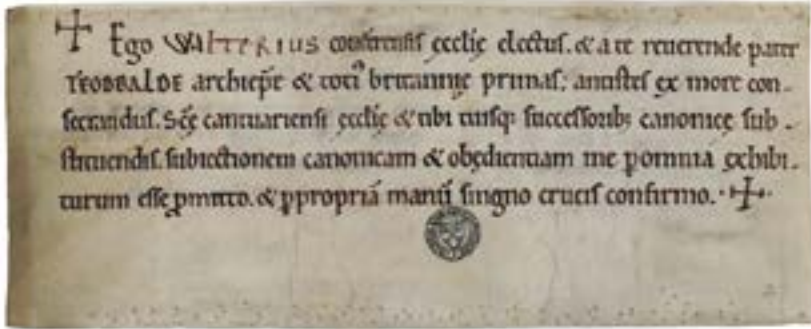 ✝ Ego WALTERIUS couentrensis ęcclię electus. & a te reuerende pater
TEODBALDE archiep̄e & toti᾽ britannię primas; antistes ex more con-
secrandus. Scę̄ cantuariensi ęcclię & tibi tuisq; successorib; canonicę sub-
stituendis. subiectionem canonicam & obędientiam me p omnia exhibi-
turum esse ꝓmitto. & p propriā manū singno crucis confirmo. ·✝·